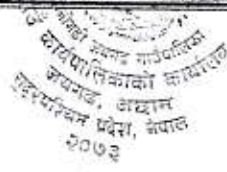 गाउँपालिका
कार्यपालिकाको कार्यालय
जयगढ, अछाम
सुदूरपश्चिम प्रदेश, नेपाल
२०७३